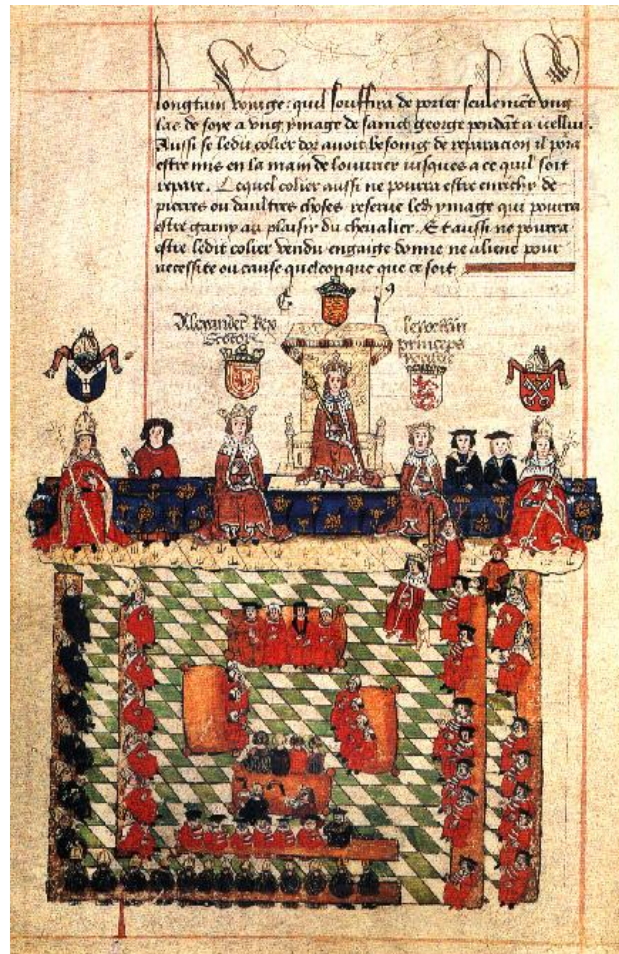 longtain voyage: quil souffira de porter seulemēt vng
lac de soye a vng ymage de sainct george pendāt a icelluy.
Aussi se ledit colier dor auoit besoing de reparacion il pora
estre mis en la main de louurier iusques a ce quil soit
repare. Lequel colier aussi ne pourra estre enrichy de
pierres ou daultres choses reserue led ymage qui pourra
estre garny au plaisir du cheualier. Et aussi ne pourra
estre ledit colier vendu engaige donne ne aliene pour
necessite ou cause quelconque que ce soit
Alexander Rex
Scotoȝ
princeps